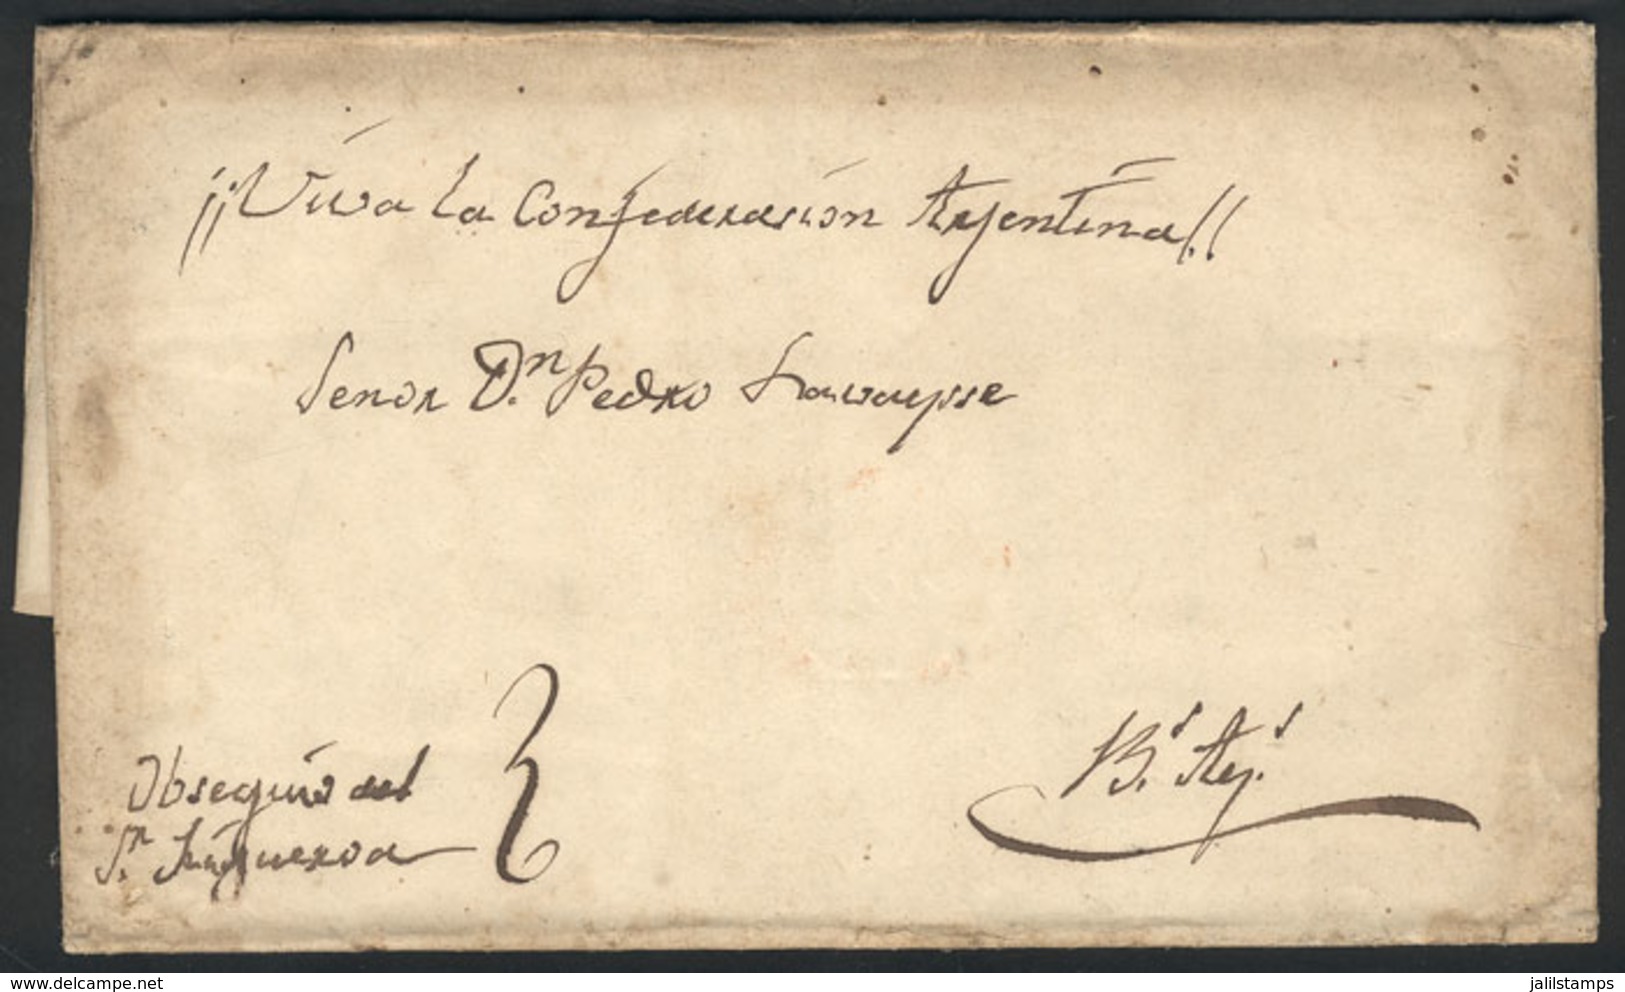 ¡¡Viva La Confederasion Argentina!!
Senor Dn. Pedro
Obsequio del
Sr. Figueroa
Bs. Ays.
delcampe.net
jalilstamps